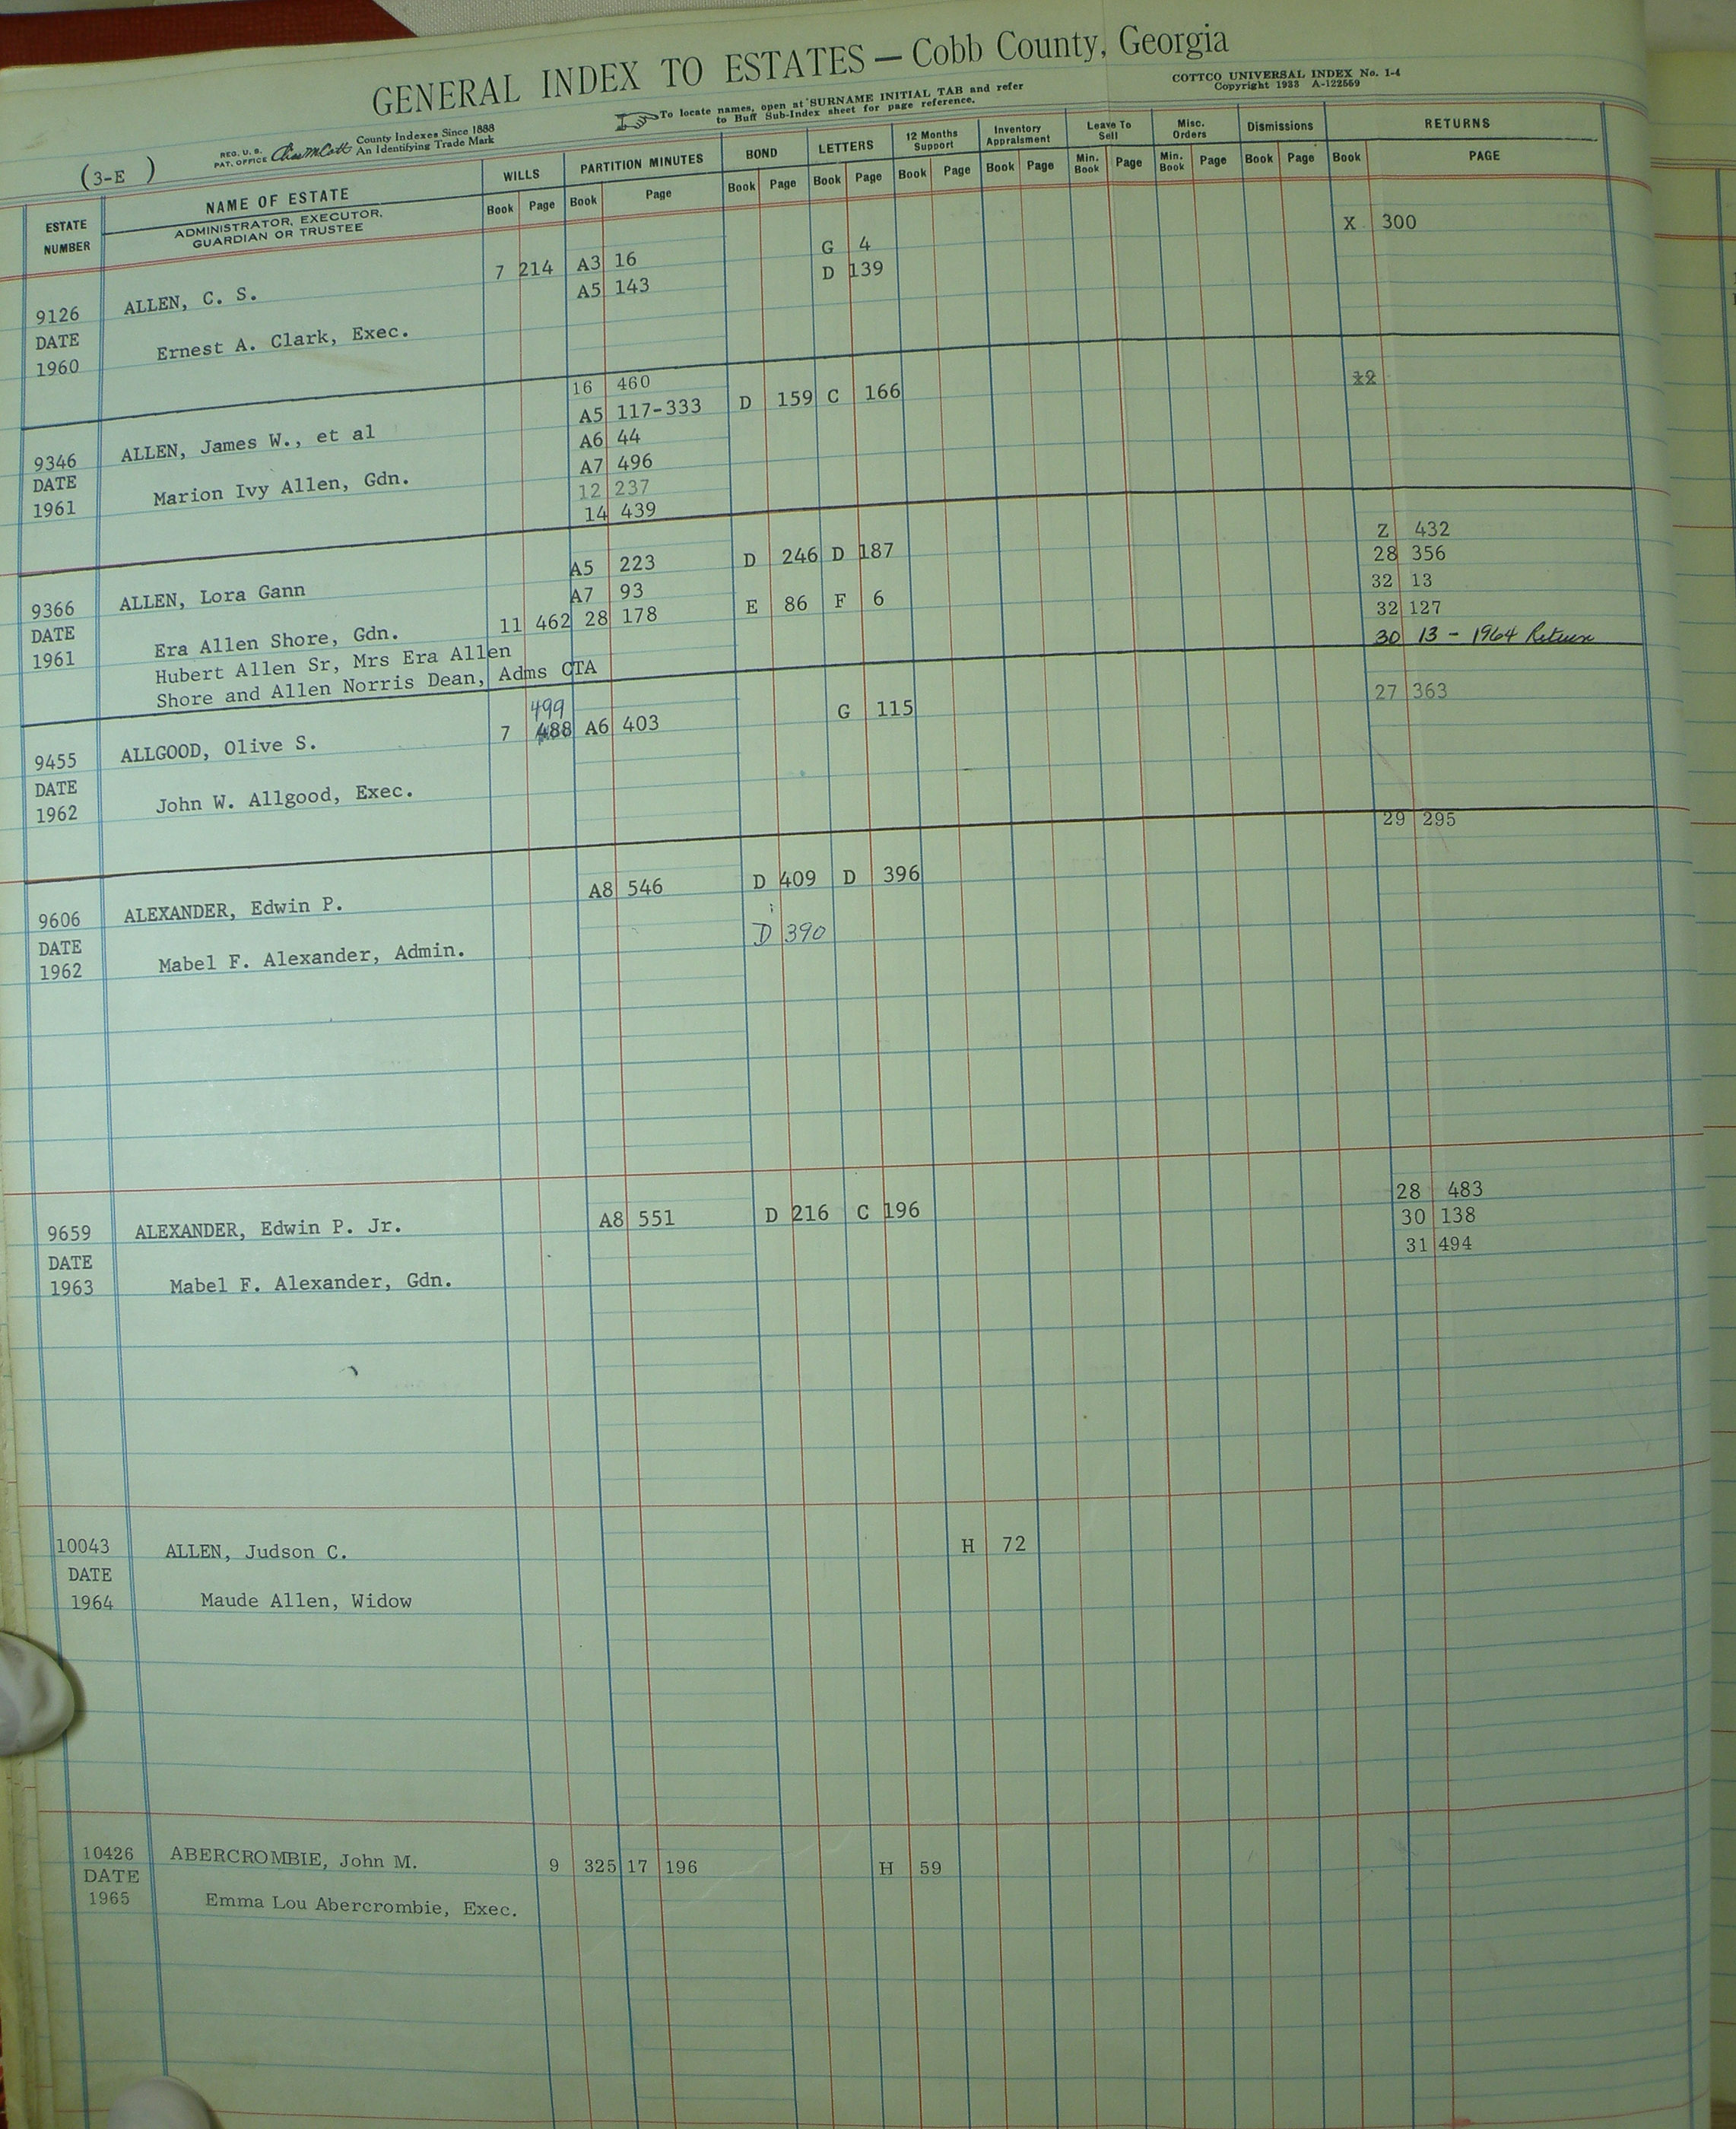 GENERAL INDEX TO ESTATES — Cobb County, Georgia
COTTCO UNIVERSAL INDEX No. 1-4
Copyright 1933 A-122559
To locate names, open at SURNAME INITIAL TAB and refer
to Buff Sub-Index sheet for page reference.
(3-E)
REG. U. S.
PAT. OFFICE
County Indexes Since 1888
An Identifying Trade Mark
ESTATE NUMBER
NAME OF ESTATE
ADMINISTRATOR, EXECUTOR,
GUARDIAN OR TRUSTEE
WILLS PARTITION MINUTES BOND LETTERS 12 Months Support Inventory Appraisment Leave To Sell Misc. Orders Dismissions RETURNS
Book Page Book Page Book Page Book Page Book Page Book Page Min. Book Page Min. Book Page Book Page Book PAGE
9126 ALLEN, C. S. 7 214 A3 16 G 4 X 300
A5 143 D 139
DATE
1960 Ernest A. Clark, Exec.
16 460
9346 ALLEN, James W., et al A5 117-333 D 159 C 166
A6 44
DATE A7 496
1961 Marion Ivy Allen, Gdn. 12 237
14 439
9366 ALLEN, Lora Gann A5 223 D 246 D 187 Z 432
A7 93 28 356
DATE Era Allen Shore, Gdn. 11 462 28 178 E 86 F 6 32 13
1961 Hubert Allen Sr, Mrs Era Allen 32 127
Shore and Allen Norris Dean, Adms CTA 30 13 - 1964 Return
499
9455 ALLGOOD, Olive S. 7 488 A6 403 G 115 27 363
DATE
1962 John W. Allgood, Exec.
29 295
9606 ALEXANDER, Edwin P. A8 546 D 409 D 396
DATE D 390
1962 Mabel F. Alexander, Admin.
28 483
9659 ALEXANDER, Edwin P. Jr. A8 551 D 216 C 196 30 138
DATE 31 494
1963 Mabel F. Alexander, Gdn.
10043 ALLEN, Judson C. H 72
DATE
1964 Maude Allen, Widow
10426 ABERCROMBIE, John M. 9 325 17 196 H 59
DATE
1965 Emma Lou Abercrombie, Exec.